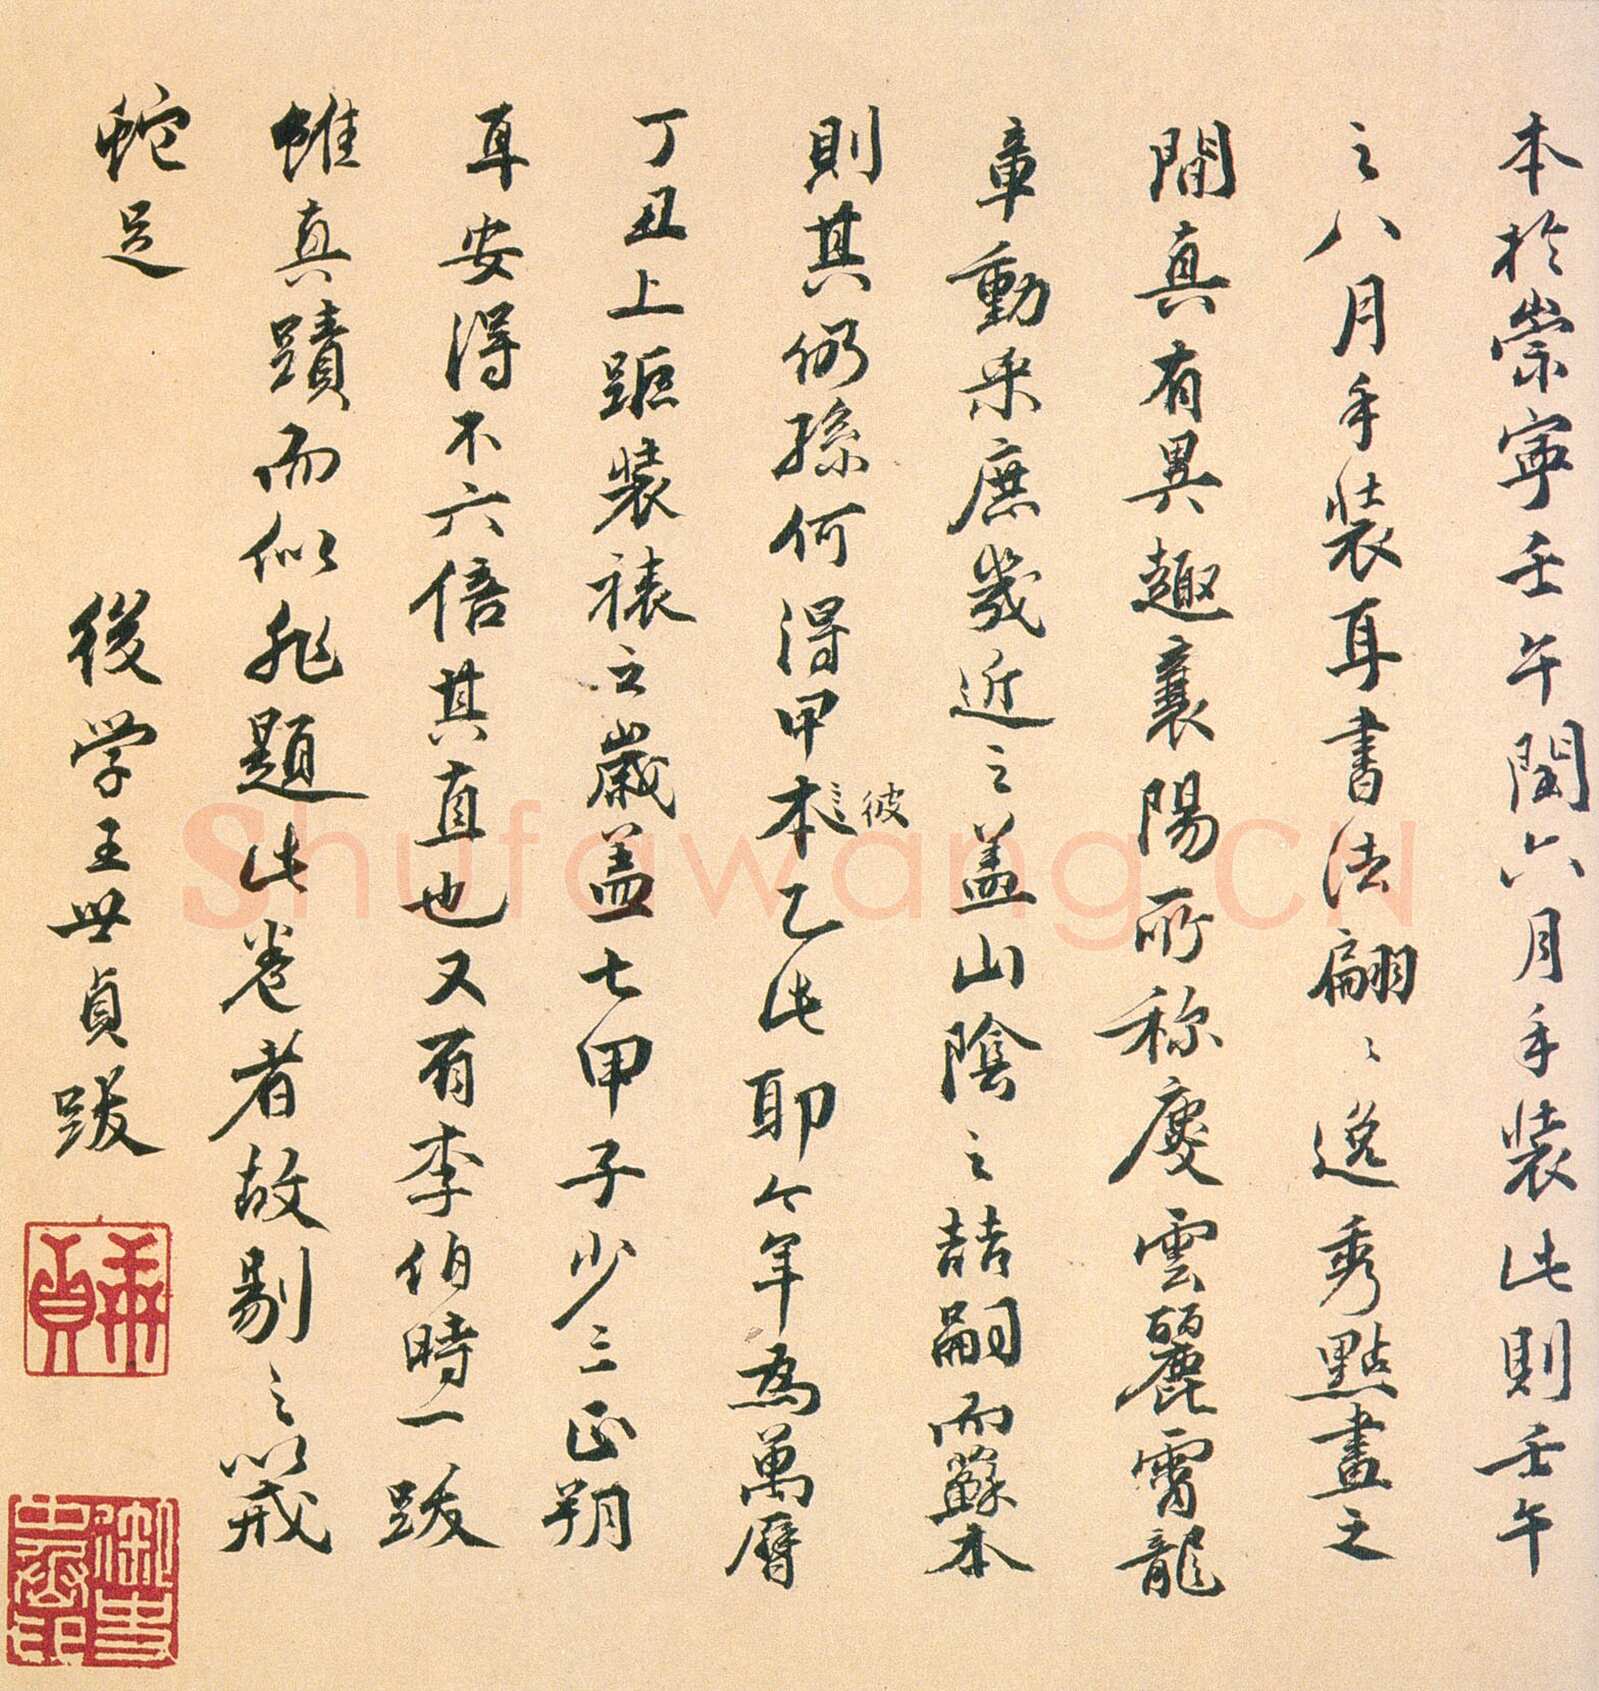 本於崇寧壬午閏六月手裝此則壬午
之八月手裝耳書法翩〻逸秀點畫之
間真有異趣襄陽所称慶雲麗霄龍
章動采庶幾近之盖山陰之喆嗣而蘇本
則其仍孫何得甲本〻乙此耶今年為萬曆
彼
丁丑上距裝裱之歲盖七甲子少三正朔
耳安得不六倍其直也又有李伯時一跋
雖真蹟而似非題此卷者故剔之以戒
蛇足
後学王世貞跋
Shufawang.CN